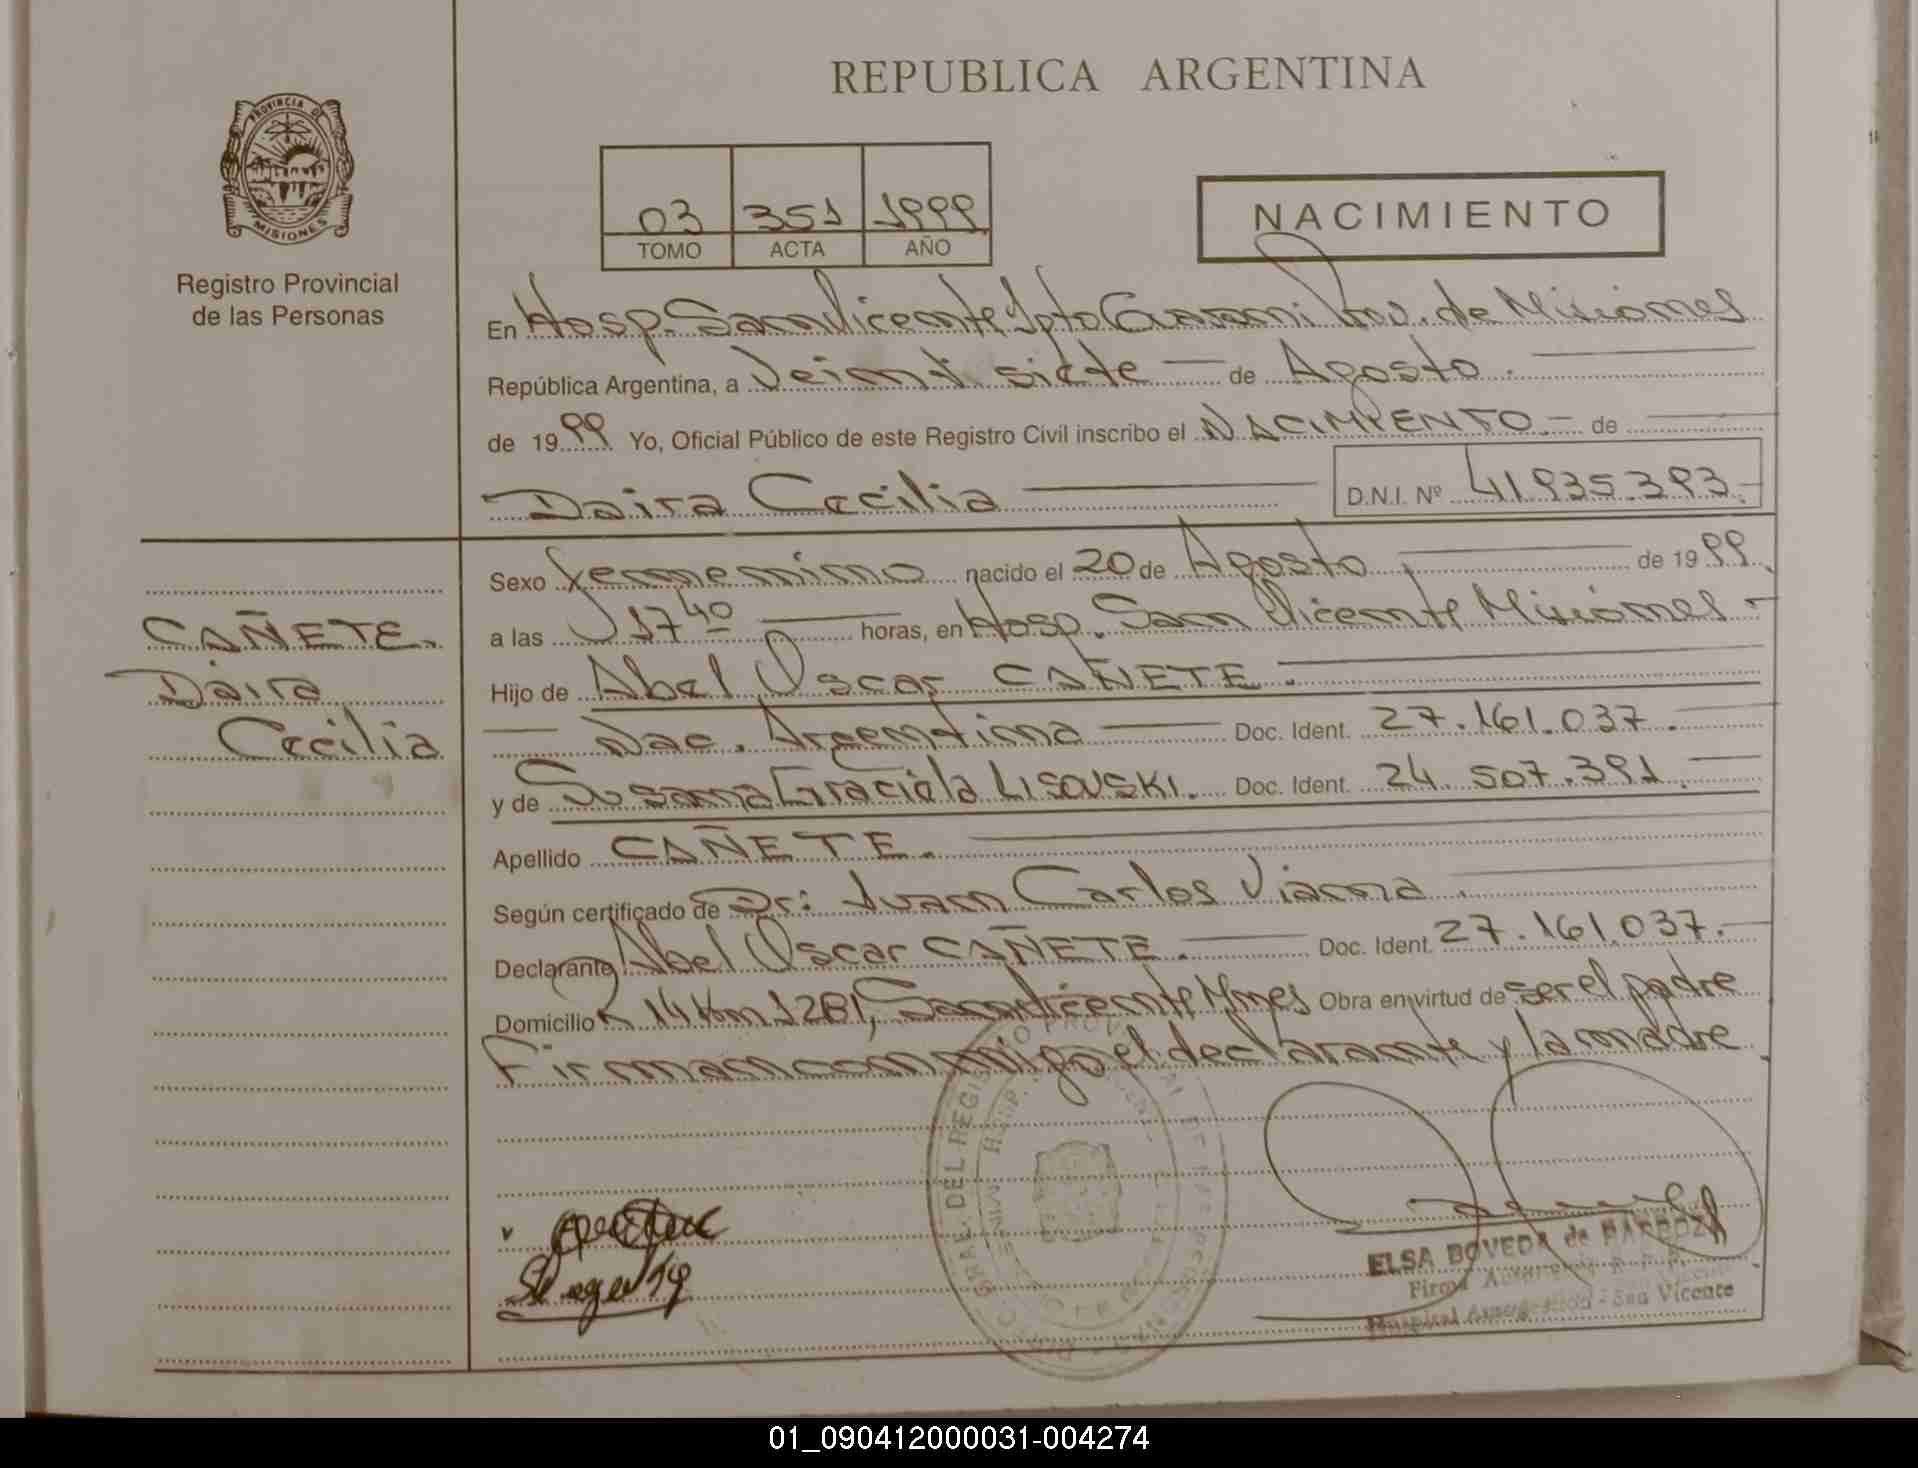 REPUBLICA ARGENTINA
PROVINCIA DE
MISIONES
Registro Provincial
de las Personas
03 351 1999
TOMO ACTA AÑO
NACIMIENTO
En Hosp. San Vicente Dpto Guarani Prov. de Misiones
República Argentina, a Veinti siete de Agosto.
de 1999 Yo, Oficial Público de este Registro Civil inscribo el NACIMIENTO.- de
Daira Cecilia D.N.I. Nº 41.935.393.-
Sexo femenino nacido el 20 de Agosto de 1999
a las 17 40 horas, en Hosp. San Vicente Misiones -
Hijo de Abel Oscar CAÑETE.
Nac. Argentina Doc. Ident. 27.161.037.
y de Susana Graciela LISOUSKI. Doc. Ident. 24.507.391.
Apellido CAÑETE.
Según certificado de Dr: Juan Carlos Vianna.
Declarante Abel Oscar CAÑETE. Doc. Ident. 27.161.037.-
Domicilio R 14 Km 1281, San Vicente Mnes Obra en virtud de ser el padre
Firman conmigo el declarante y la madre.
CAÑETE.
Daira
Cecilia
ELSA BOVEDA de BARBOZA
Hospital - San Vicente
01_090412000031-004274